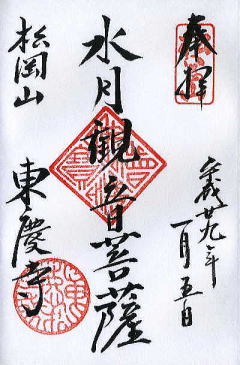 奉拝
平成廿九年
一月五日
水月觀音菩薩
松岡山
東慶寺